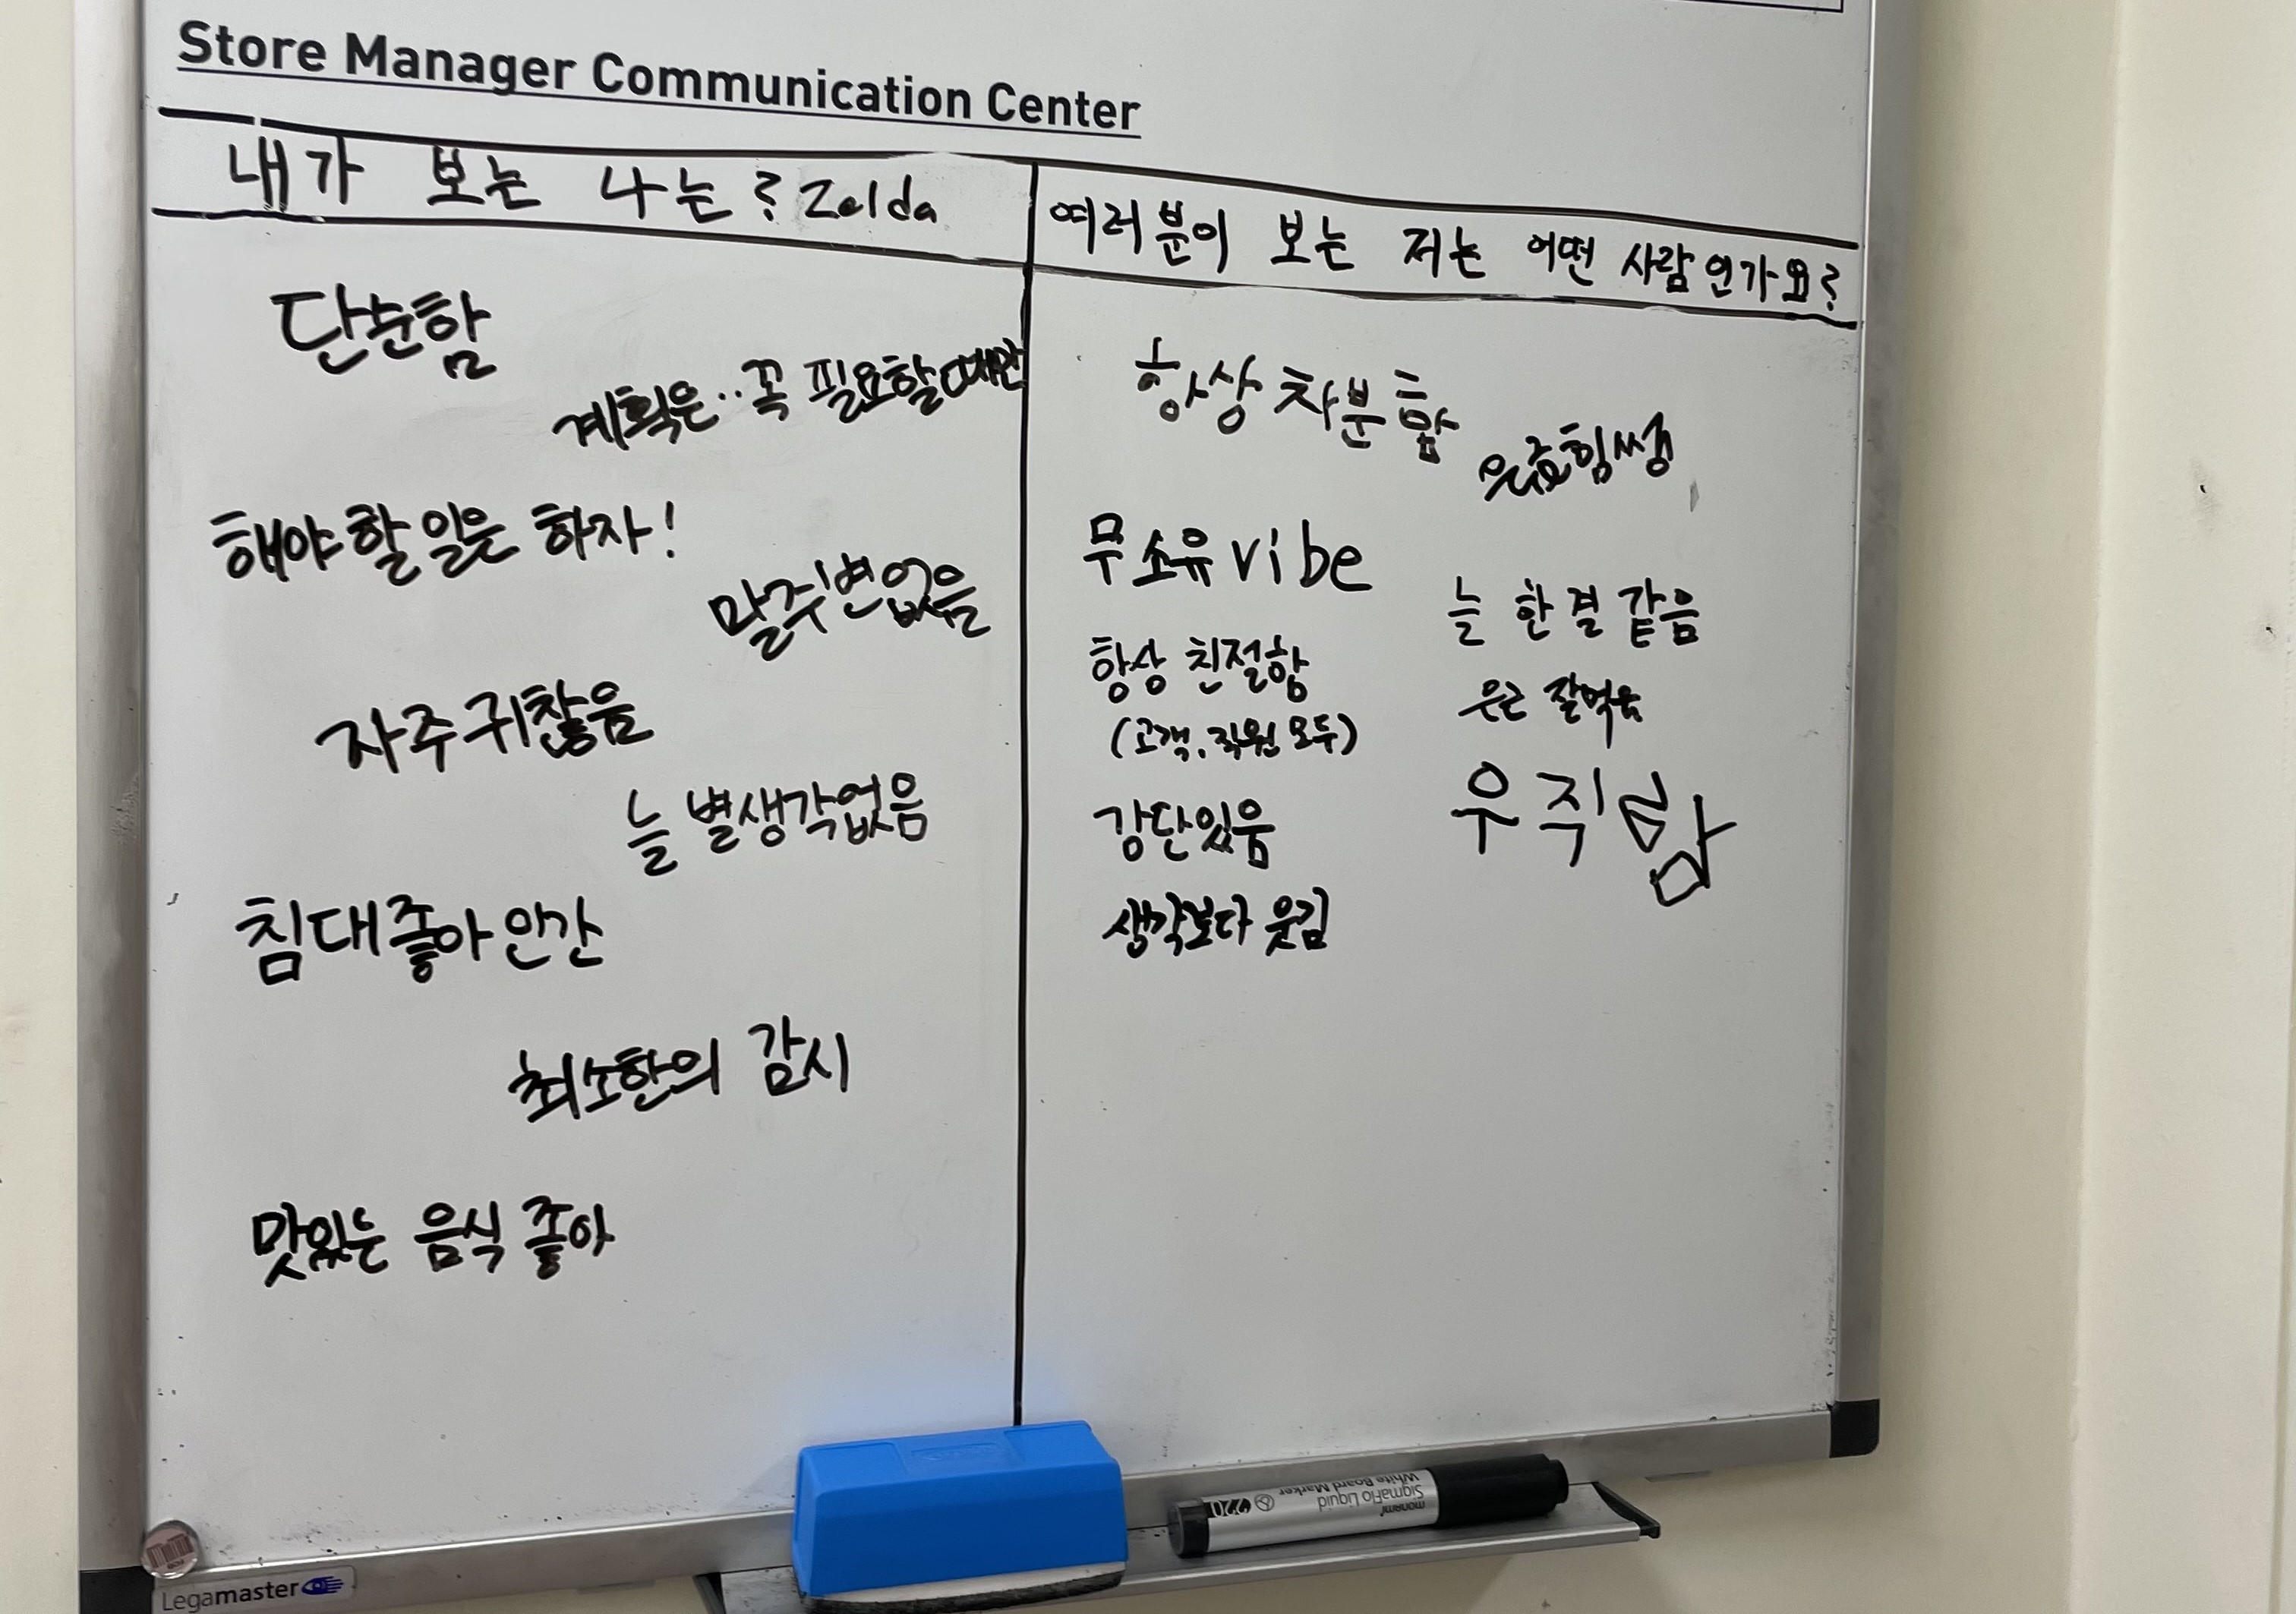 Store Manager Communication Center
내가 보는 나는? Zelda
단순함
계획은.. 꼭 필요할때만
해야할일은 하자!
말주변없음
자주귀찮음
늘 별생각없음
침대좋아인간
최소한의 감시
맛있는 음식 좋아
여러분이 보는 저는 어떤 사람인가요?
항상차분함
은근힘쎔
무소유vibe
늘 한결같음
항상 친절함
(고객.직원 모두)
은근 잘먹음
강단있음
우직함
생각보다 웃김
monami
SigmaFlo Liquid
White Board Marker
220
Legamaster